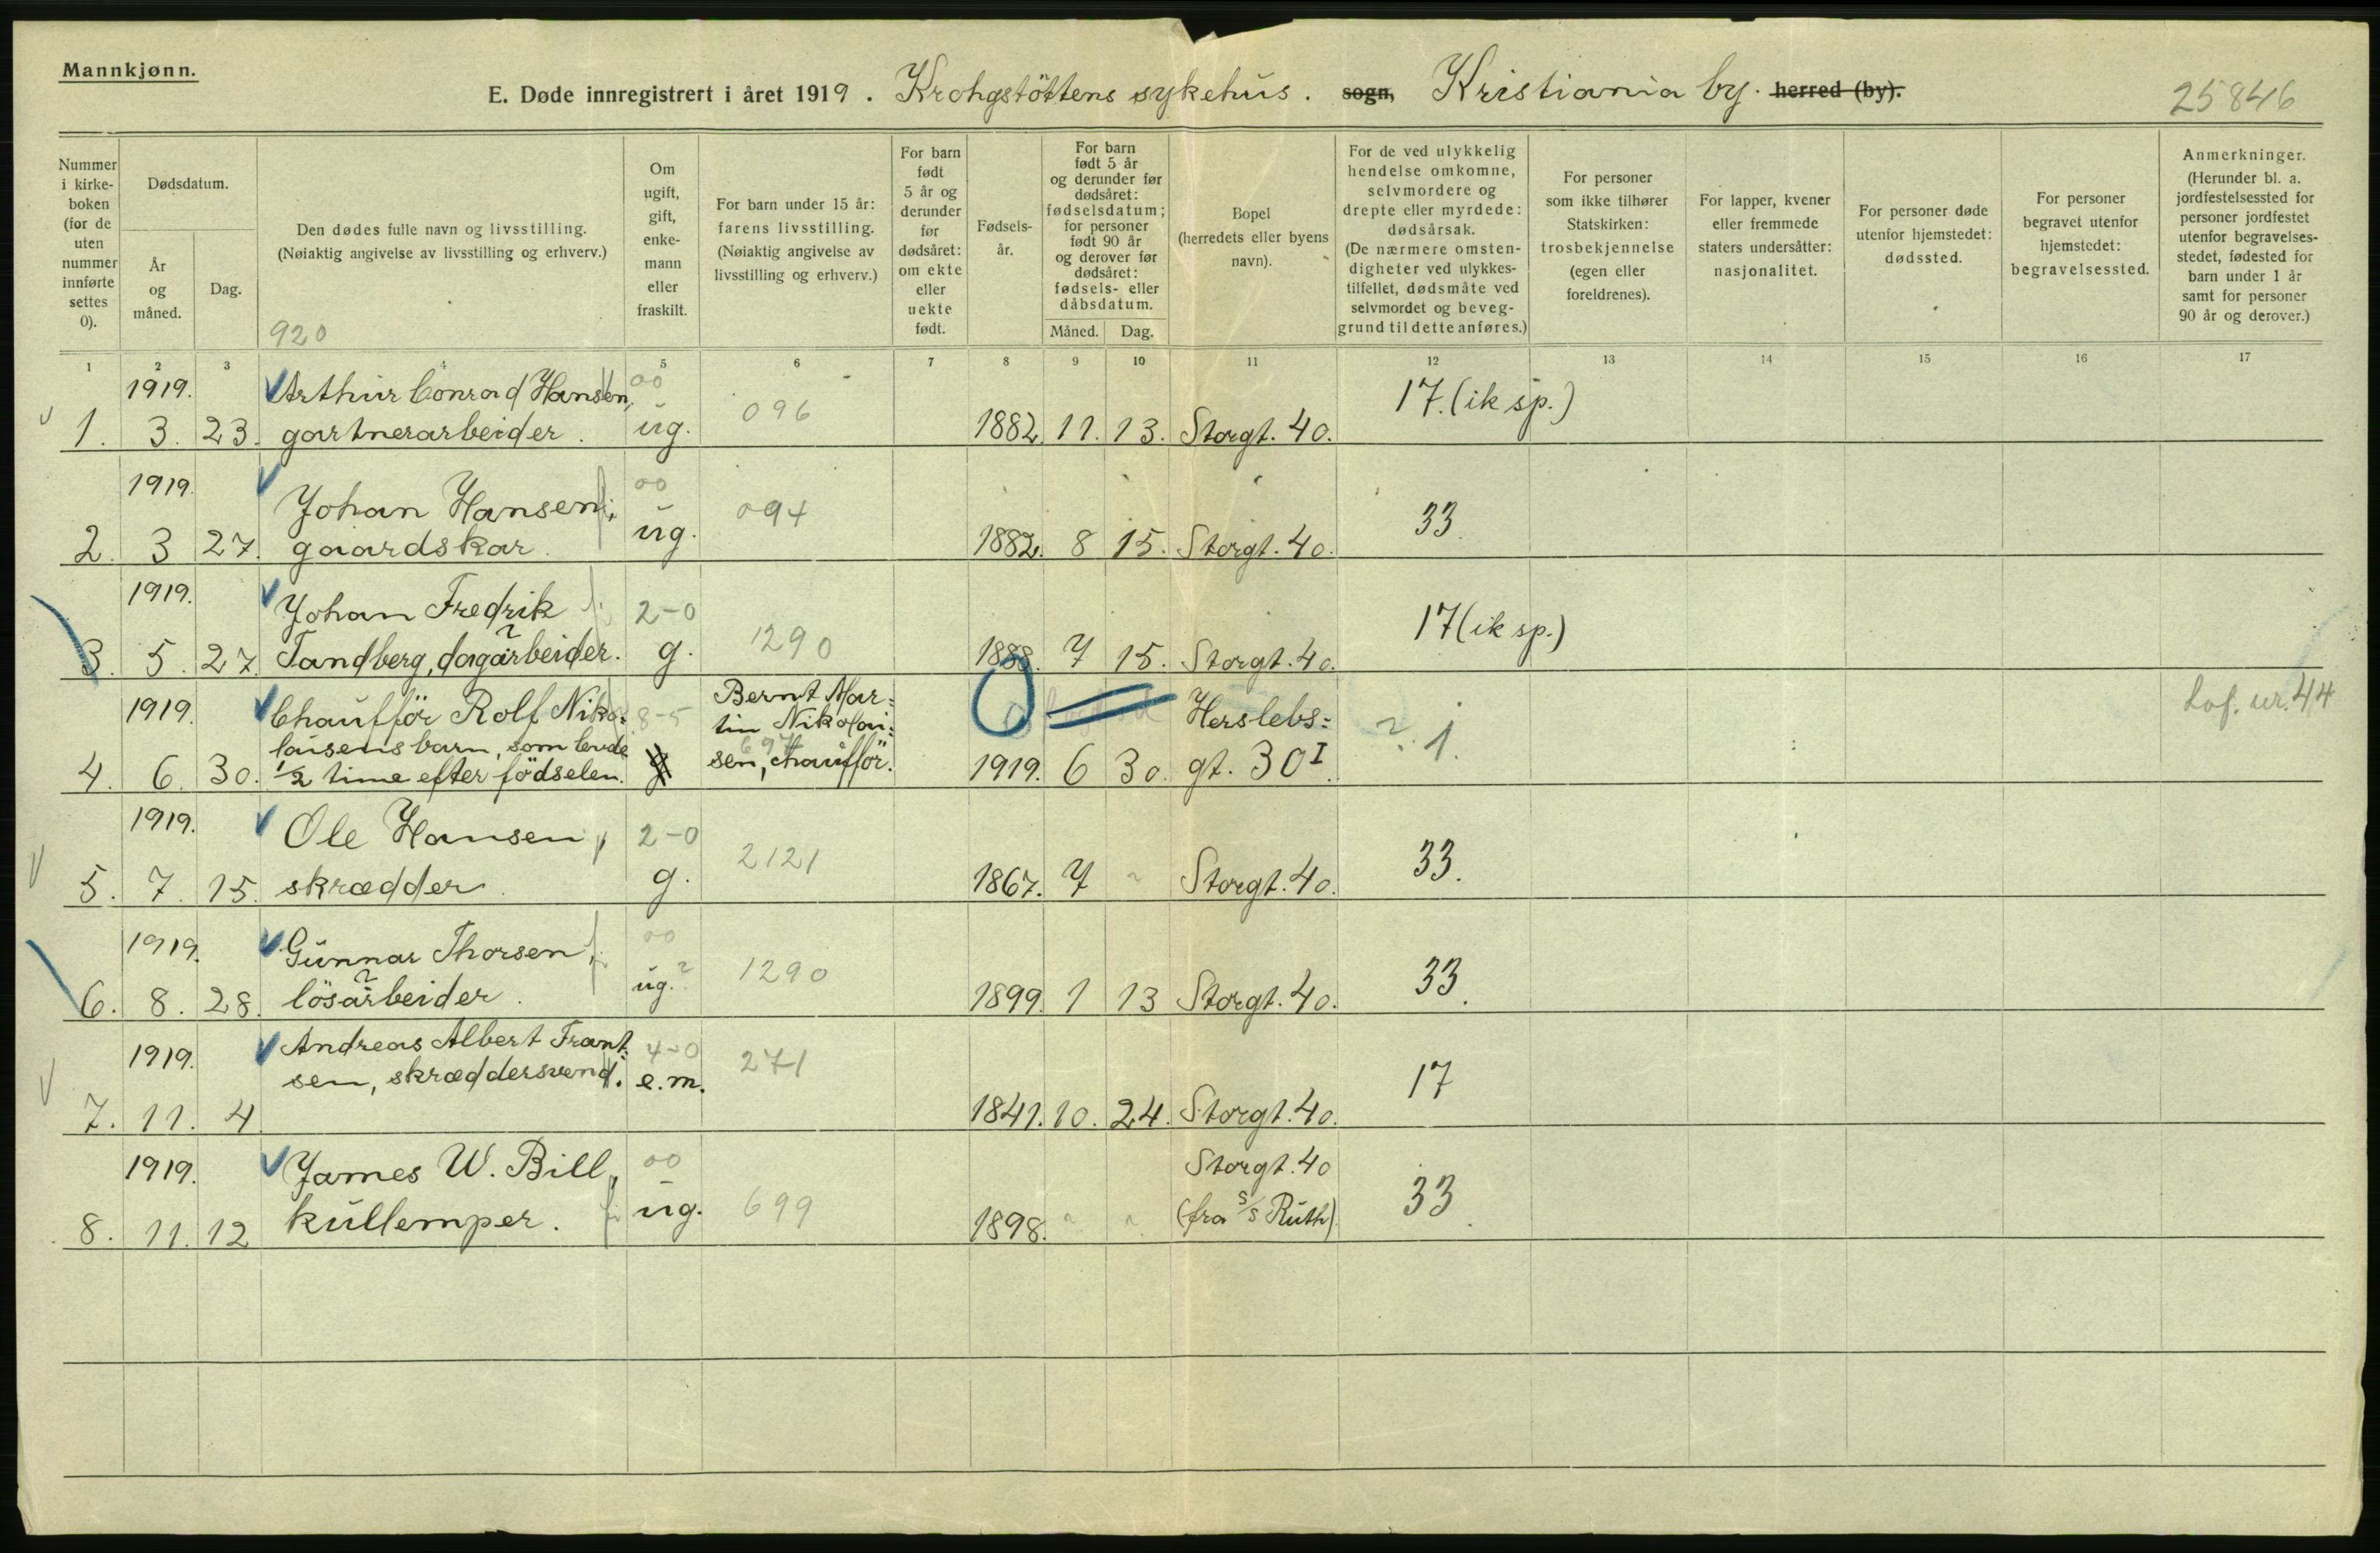 Mannkjønn.
E. Døde innregistrert i året 1919. Krohgstöttens sykehus. sogn, Kristiania by. herred (by).
25846
Nummer i kirkeboken (for de uten nummer innførte settes 0).
Dødsdatum.
År og måned.
Dag.
Den dødes fulle navn og livsstilling.
(Nøiaktig angivelse av livsstilling og erhverv.)
920
Om ugift, gift, enkemann eller fraskilt.
For barn under 15 år: farens livsstilling. (Nøiaktig angivelse av livsstilling og erhverv.)
For barn født 5 år og derunder før dødsåret: om ekte eller uekte født.
Fødselsår.
For barn født 5 år og derunder før dødsåret: fødselsdatum; for personer født 90 år og derover før dødsåret: fødsels- eller dåbsdatum.
Måned. Dag.
Bopel (herredets eller byens navn).
For de ved ulykkelig hendelse omkomne, selvmordere og drepte eller myrdede: dødsårsak. (De nærmere omstendigheter ved ulykkestilfellet, dødsmåte ved selvmordet og beveggrund til dette anføres.)
For personer som ikke tilhører Statskirken: trosbekjennelse (egen eller foreldrenes).
For lapper, kvener eller fremmede staters undersåtter: nasjonalitet.
For personer døde utenfor hjemstedet: dødssted.
For personer begravet utenfor hjemstedet: begravelsessted.
Anmerkninger. (Herunder bl. a. jordfestelsessted for personer jordfestet utenfor begravelsesstedet, fødested for barn under 1 år samt for personer 90 år og derover.)
1 2 3 4 5 6 7 8 9 10 11 12 13 14 15 16 17
1919. Arthur Conrad Hansen, 00 17. (ik sp.)
1. 3. 23. gartnerarbeider. ug. 096 1882. 11. 13. Storgt. 40.
1919. Johan Hansen, 00 094 33.
2. 3 27. gaardskar. ug. 1882. 8 15. Storgt. 40.
1919. Johan Fredrik 2-0 17 (ik sp.)
3. 5. 27. Tandberg, dagarbeider. g. 1290 1888. 7 15. Storgt. 40.
1919. Chaufför Rolf Niko= 8-5 Bernt Mar= Herslebs= 1. nr. 44
laisens barn, som levde tin Nikolai=
4. 6. 30. ½ time efter födselen. g sen, chaufför. 697 1919. 6 30. gt. 30 I.
1919. Ole Hansen, 2-0 2121 33.
5. 7. 15. skrædder. g. 1867. 7 " Storgt. 40.
1919. Gunnar Thorsen, 00 1290 33.
6. 8. 28. lösarbeider. ug. ? 1899. 1 13 Storgt. 40.
1919. Andreas Albert Frant= 4-0 271 17
sen, skræddersvend. e.m.
7. 11. 4 1841. 10. 24. Storgt. 40.
1919. James W. Bill, 00 Storgt. 40 33.
8. 11. 12 kullemper. ug. 699 1898. " " (fra S/S Ruth)